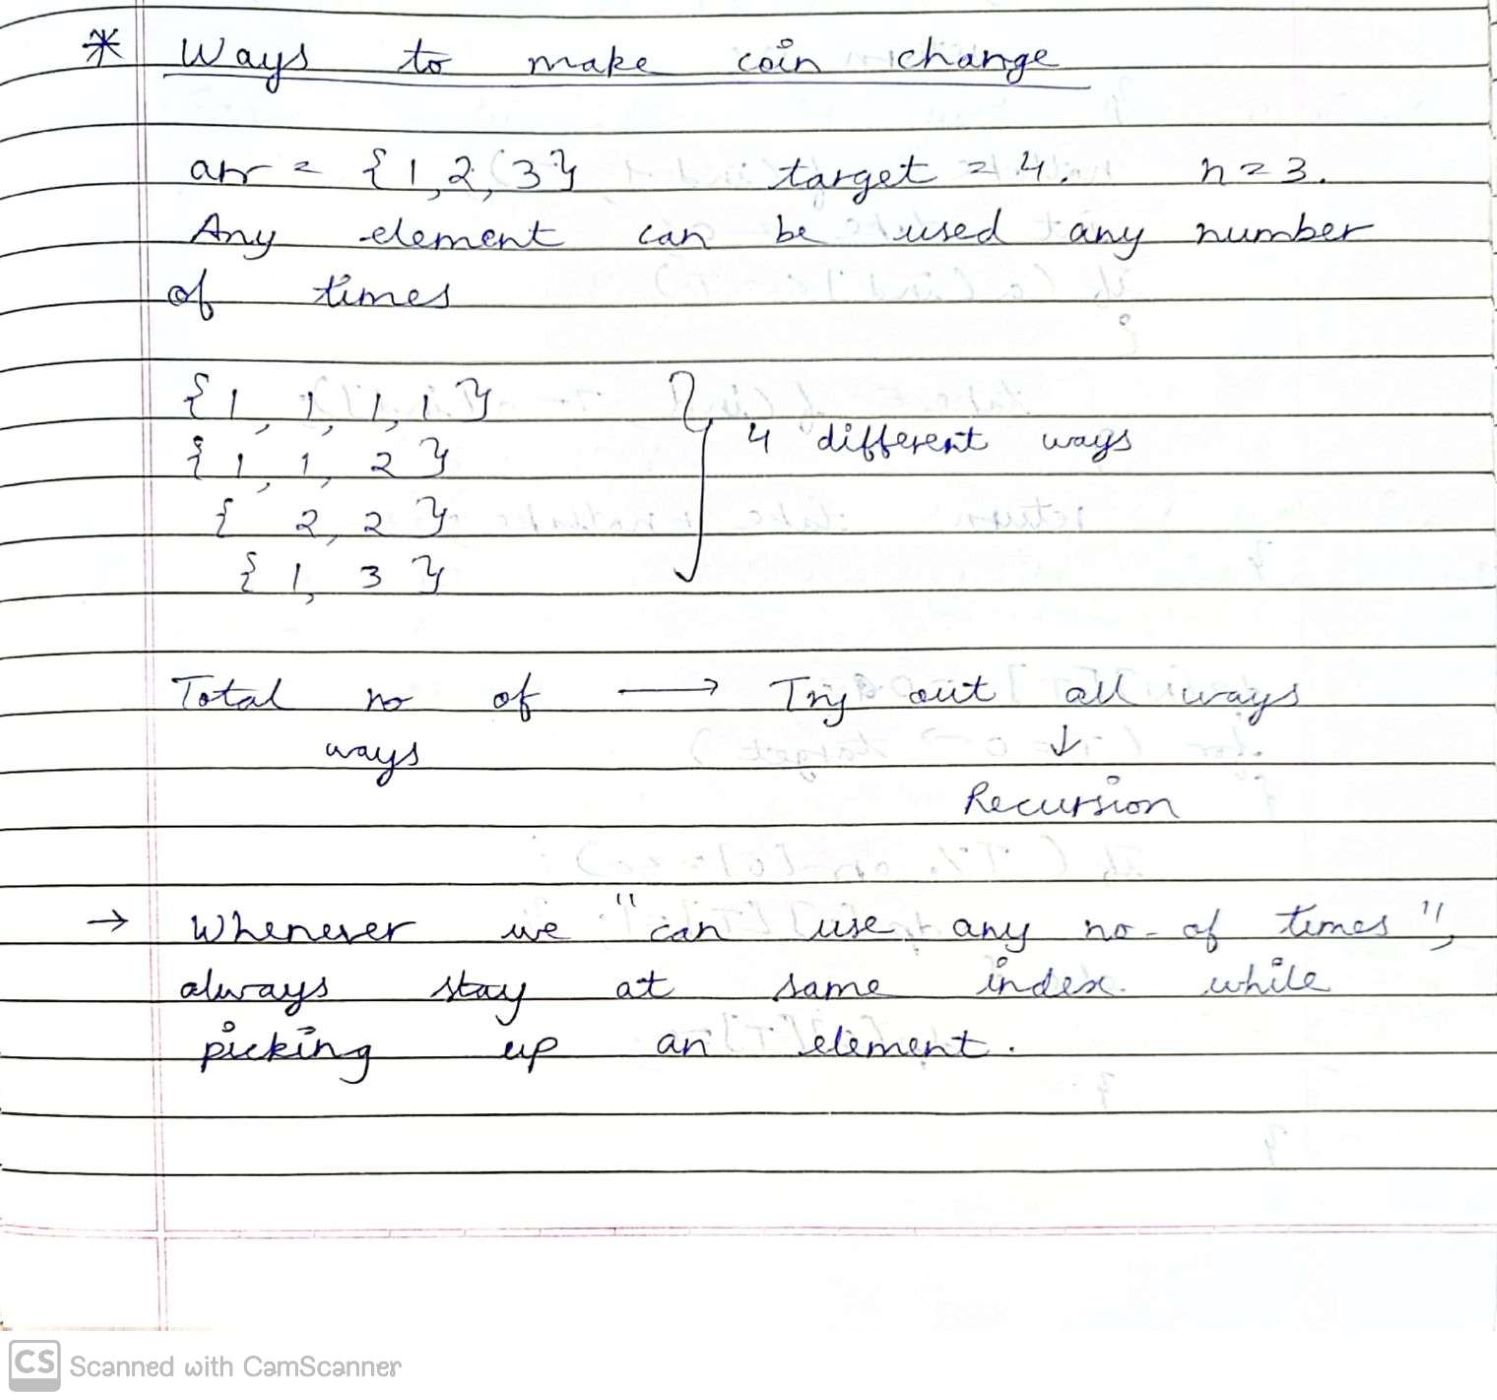 * Ways to make coin change
arr = {1, 2, 3} target = 4. n = 3.
Any element can be used any number
of times
{1, 1, 1, 1}
4 different ways
{1, 1, 2}
{2, 2}
{1, 3}
Total no of → Try out all ways
ways ↓
Recursion
→ Whenever we "can use any no. of times",
always stay at same index while
picking up an element.
CS Scanned with CamScanner